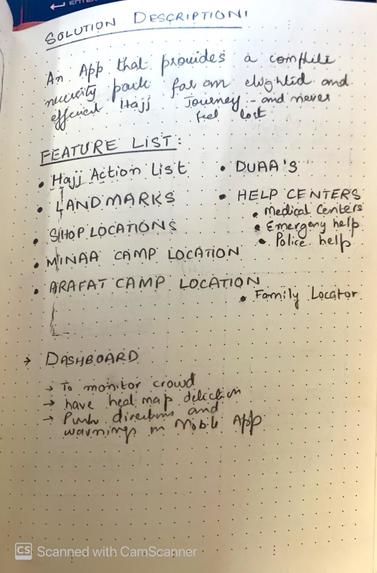 SOLUTION DESCRIPTION:
An App that provides a complete
security pack for an elighted and
efficient Hajj Journey - and never
feel lost
FEATURE LIST:
• Hajj Action List
• LANDMARKS
• SHOP LOCATIONS
• MINAA CAMP LOCATION
• ARAFAT CAMP LOCATION
• DUAA'S
• HELP CENTERS
• Medical Centers
• Emergency help
• Police help
• Family Locator
→ DASHBOARD
→ To monitor crowd
→ have heat map detection
→ Push directions and
warnings on Mobile App
CS Scanned with CamScanner